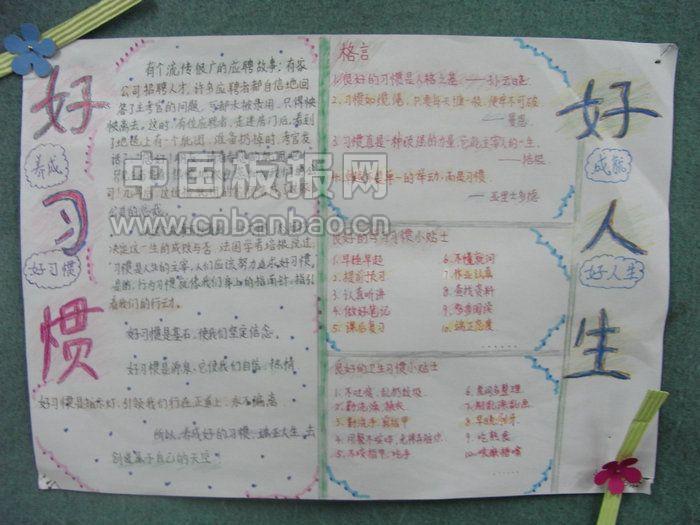 好习惯
养成
好习惯
有个流传很广的应聘故事:有家
公司招聘人才,许多应聘者都自信地回
答了主考官的问题,可都未被录用,只得怏
怏离去。这时,有位应聘者,走进房门后,看到
了地毯上有个纸团,准备扔掉时,考官发
决定这一生的成败与否,法国学者培根说过,
习惯是人生的主宰,人们应该努力追求好习惯。
是的,行为习惯就像我们身上的指南针,指引
着我们的行动。
好习惯是基石,使我们坚定信念。
好习惯是源泉,它使我们自信、热情
好习惯是指示灯,引领我们行在正道上,永不偏离
所以,养成好的习惯,端正人生,去
创造属于自己的天空!
格言
1.良好的习惯是人格之基——孙云晓
2.习惯如缆绳,只要每天缠一股,便牢不可破
——曼恩
3.习惯真是一种顽强的力量,它能主宰人的一生。
——培根
单一的举动,而是习惯
——亚里士多德
良好的学习习惯小贴士
1.早睡早起
2.提前预习
3.认真听讲
4.做好笔记
5.课后复习
6.不懂就问
7.作业认真
8.查找资料
9.多步阅读
10.端正态度
良好的卫生习惯小贴士
1.不吐痰、乱扔垃圾
2.勤洗澡、换衣
3.勤洗手,剪指甲
4.用餐不咳嗽,无棒舌舔饮
5.不咬指甲、吃手
6.房间多整理
7.
8.早晚刷牙
9.吃熟食
10.咳嗽捂嘴
好人生
成就
好人生
中国板报网
www.cnbanbao.cn